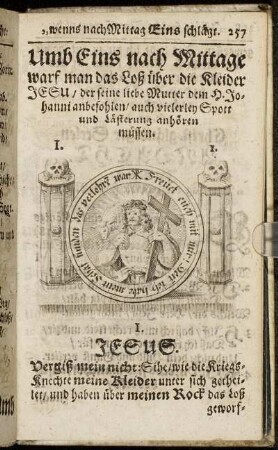 „ wenns nach Mittag Eins schlägt. 257
Umb Eins nach Mittage
warf man das Loß über die Kleider
JESU / der seine liebe Mutter dem H. Jo-
hanni anbefohlen / auch vielerley Spott
und Lästerung anhören
müssen.
I. I.
Freuet euch mit mir: Den ich habe mein Schaf funden das verlohrē war
I.
JESUS.
Vergiß mein nicht: Sihe / wie die Kriegs-
Knechte meine Kleider unter sich gethei-
let / und haben über meinen Rock das Loß
geworf-